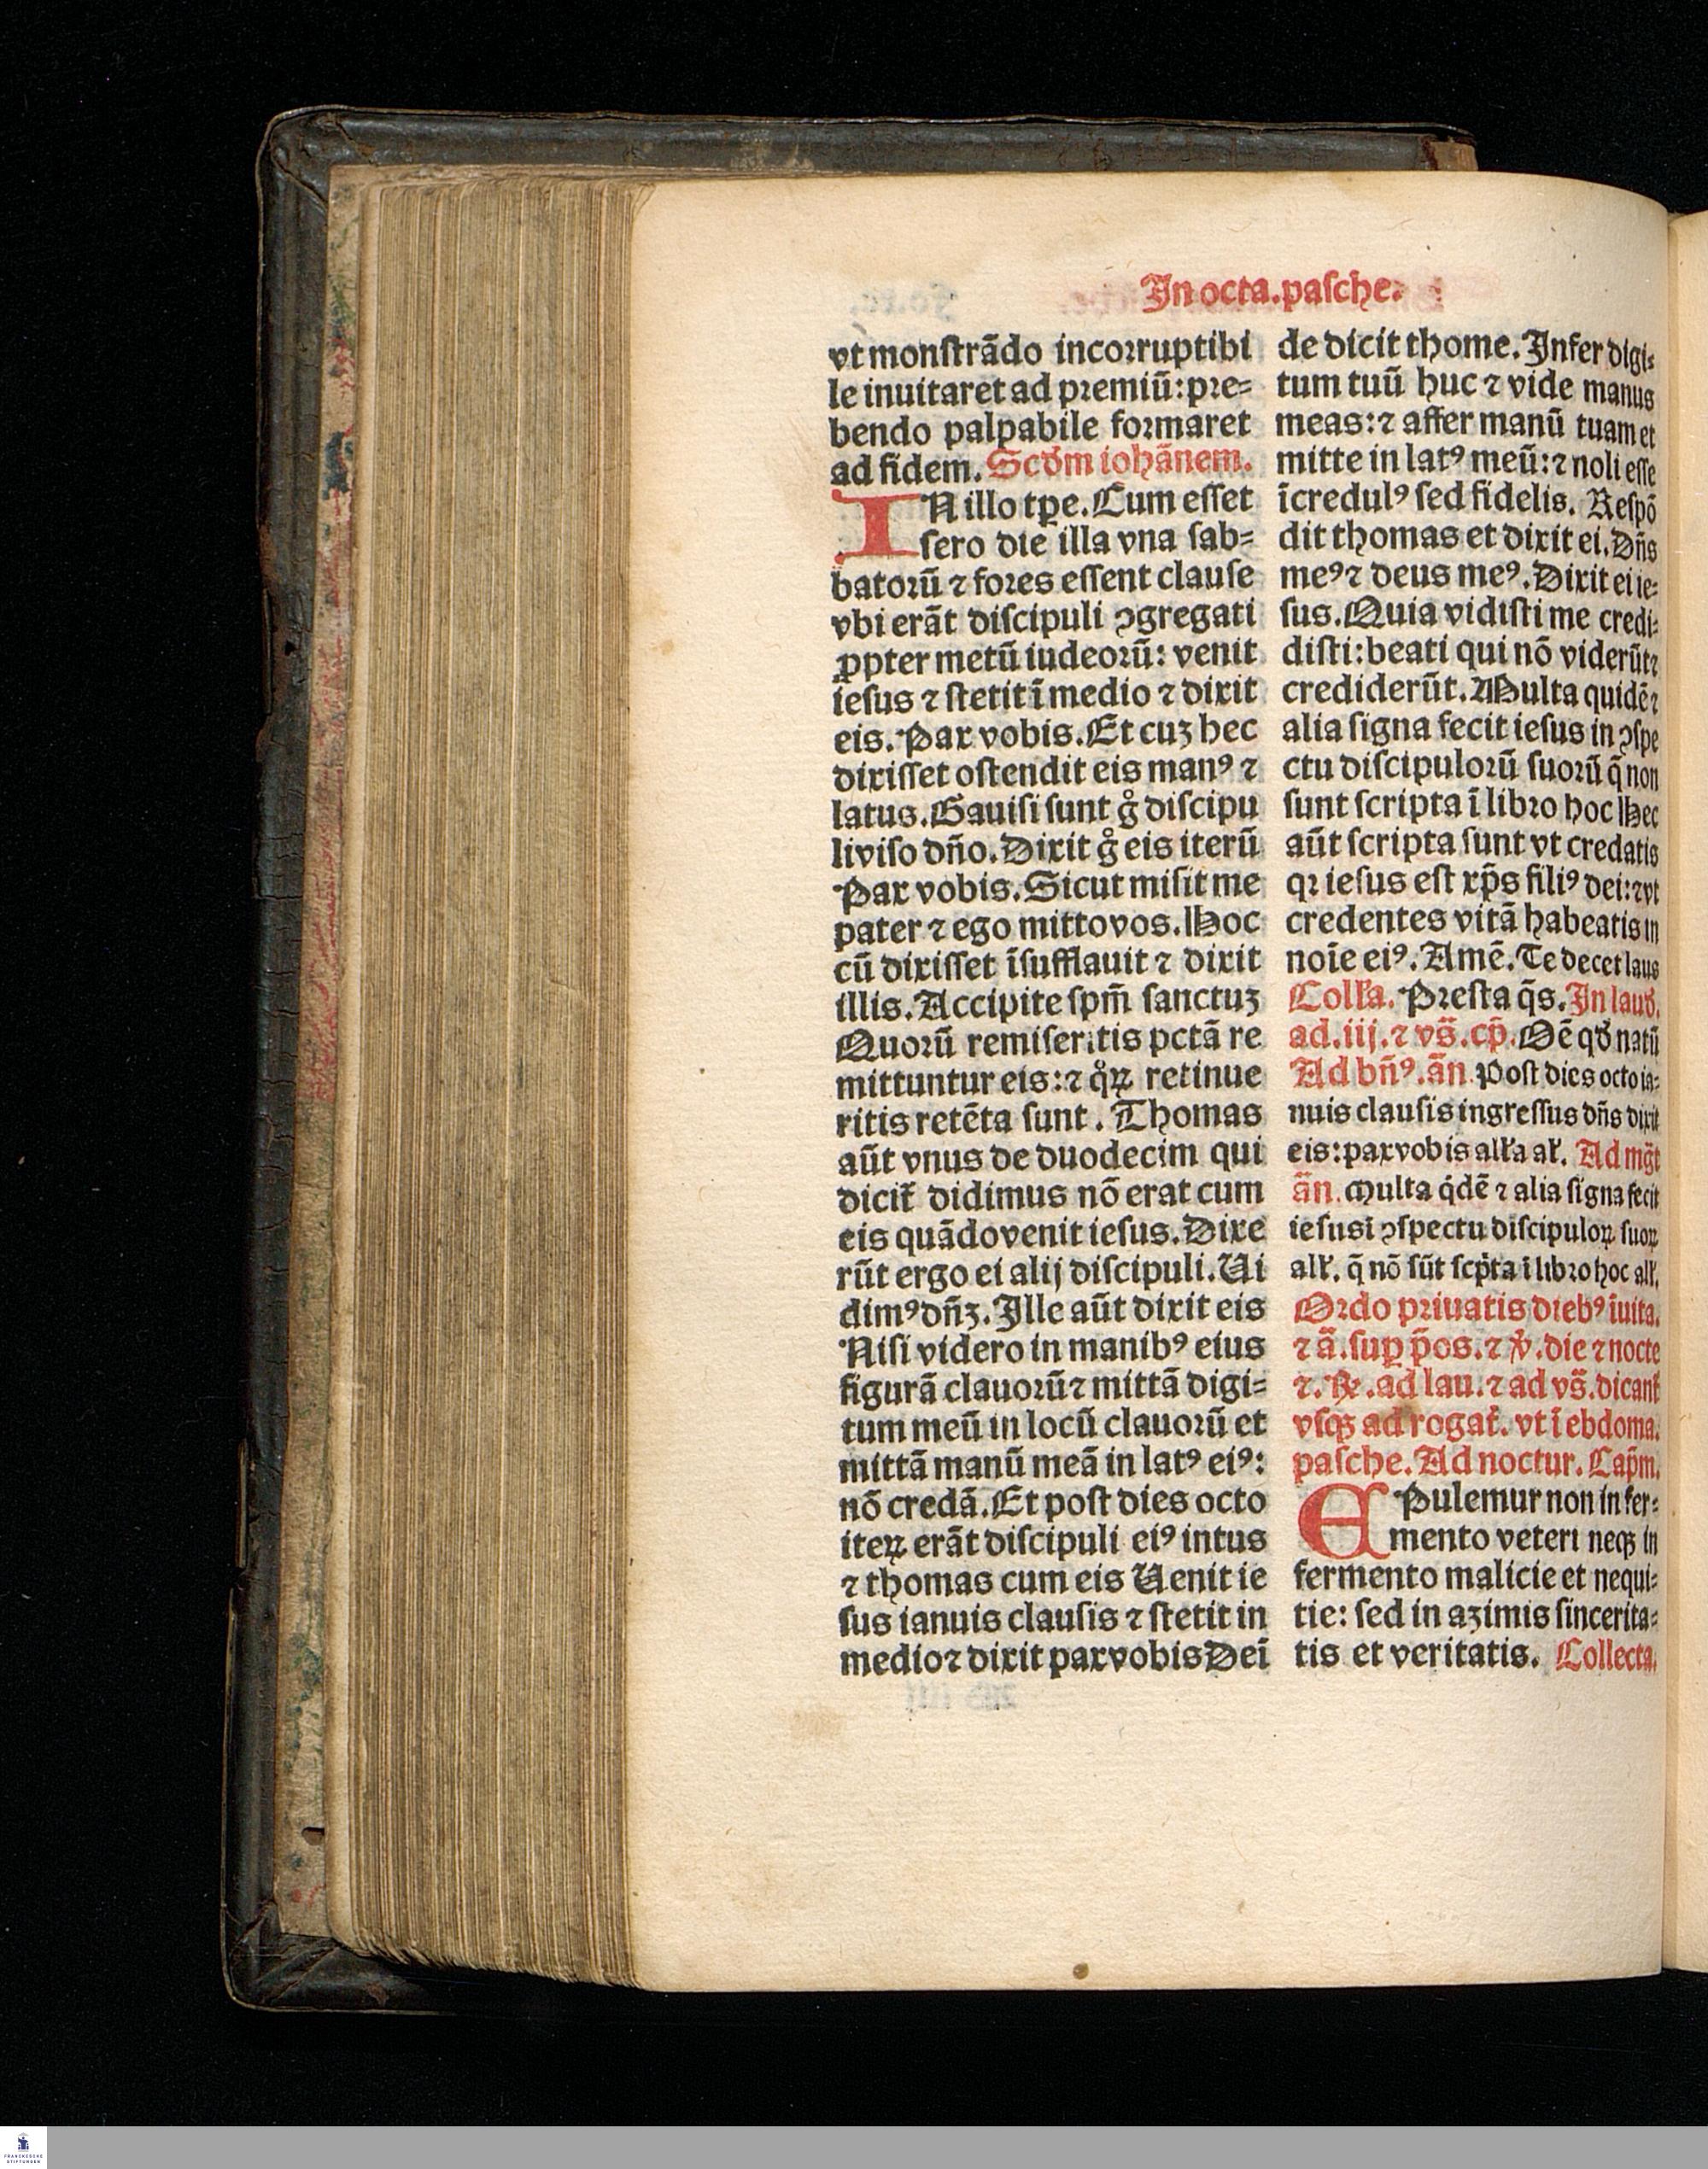 In octa.pasche.
vt monstrādo incorruptibi
le inuitaret ad premiū:pre=
bendo palpabile formaret
ad fidem. Scd̄m iohānem.
IN illo tp̄e. Cum esset
sero die illa vna sab=
batorū ⁊ fores essent clause
vbi erāt discipuli ꝯgregati
ꝓpter metū iudeorū: venit
iesus ⁊ stetit ī medio ⁊ dixit
eis. Pax vobis. Et cuꝫ hec
dixisset ostendit eis manꝰ ⁊
latus. Gauisi sunt gͦ discipu
li viso dn̄o. Dixit gͦ eis iterū
Pax vobis. Sicut misit me
pater ⁊ ego mitto vos. Hoc
cū dixisset īsufflauit ⁊ dixit
illis. Accipite spm̄ sanctuꝫ
Quorū remiseritis pctā re
mittuntur eis: ⁊ qͦꝝ retinue
ritis retēta sunt. Thomas
aūt vnus de duodecim qui
dicit̄ didimus nō erat cum
eis quādo venit iesus. Dixe
rūt ergo ei alij discipuli. Ui
dimꝰ dn̄ꝫ. Ille aūt dixit eis
Nisi videro in manibꝰ eius
figurā clauorū ⁊ mittā digi=
tum meū in locū clauorū et
mittā manū meā in latꝰ eiꝰ:
nō credā. Et post dies octo
iteꝝ erāt discipuli eiꝰ intus
⁊ thomas cum eis Uenit ie
sus ianuis clausis ⁊ stetit in
medio ⁊ dixit pax vobis Deī
de dicit thome. Infer digi=
tum tuū huc ⁊ vide manus
meas: ⁊ affer manū tuam et
mitte in latꝰ meū: ⁊ noli esse
īcredulꝰ sed fidelis. Respō
dit thomas et dixit ei. Dn̄s
meꝰ ⁊ deus meꝰ. Dixit ei ie=
sus. Quia vidisti me credi=
disti: beati qui nō viderūt ⁊
crediderūt. Multa quidē ⁊
alia signa fecit iesus in ꝯspe
ctu discipulorū suorū q̄ non
sunt scripta ī libro hoc Hec
aūt scripta sunt vt credatis
qꝛ iesus est xp̄s filiꝰ dei: ⁊ vt
credentes vitā habeatis in
noīe eiꝰ. Amē. Te decet laus
Coll̄a. Presta q̄s. In laud̄.
ad.iij. ⁊ vs̄. cp̄. Oē qd̄ natū
Ad bn̄ꝰ. an̄. Post dies octo ia=
nuis clausis ingressus dn̄s dixit
eis: pax vobis all̄a al̄. Ad mḡt
ān. Multa q̇dē ⁊ alia signa fecit
iesus ī ꝯspectu discipuloꝝ suoꝝ
all̄. q̄ nō sūt scp̄ta ī libro hoc all̄.
Ordo priuatis diebꝰ īuita.
⁊ ā. suꝑ p̄os. ⁊ ℣. die ⁊ nocte
⁊. ℞. ad lau. ⁊ ad vs̄. dicant̄
vsqꝫ ad rogat̄. vt ī ebdoma.
pasche. Ad noctur. Cap̄m.
EPulemur non in fer=
mento veteri neqꝫ in
fermento malicie et nequi=
tie: sed in azimis sincerita=
tis et veritatis. Collecta.
FRANCKESCHE
STIFTUNGEN